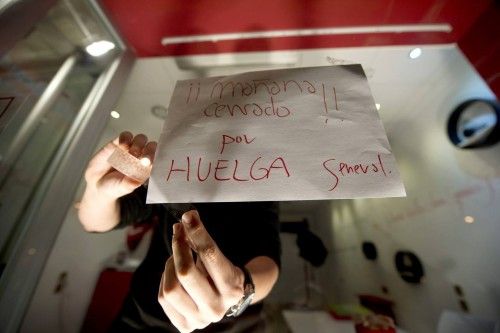 ¡¡ mañana
cerrado !!
por
HUELGA General.